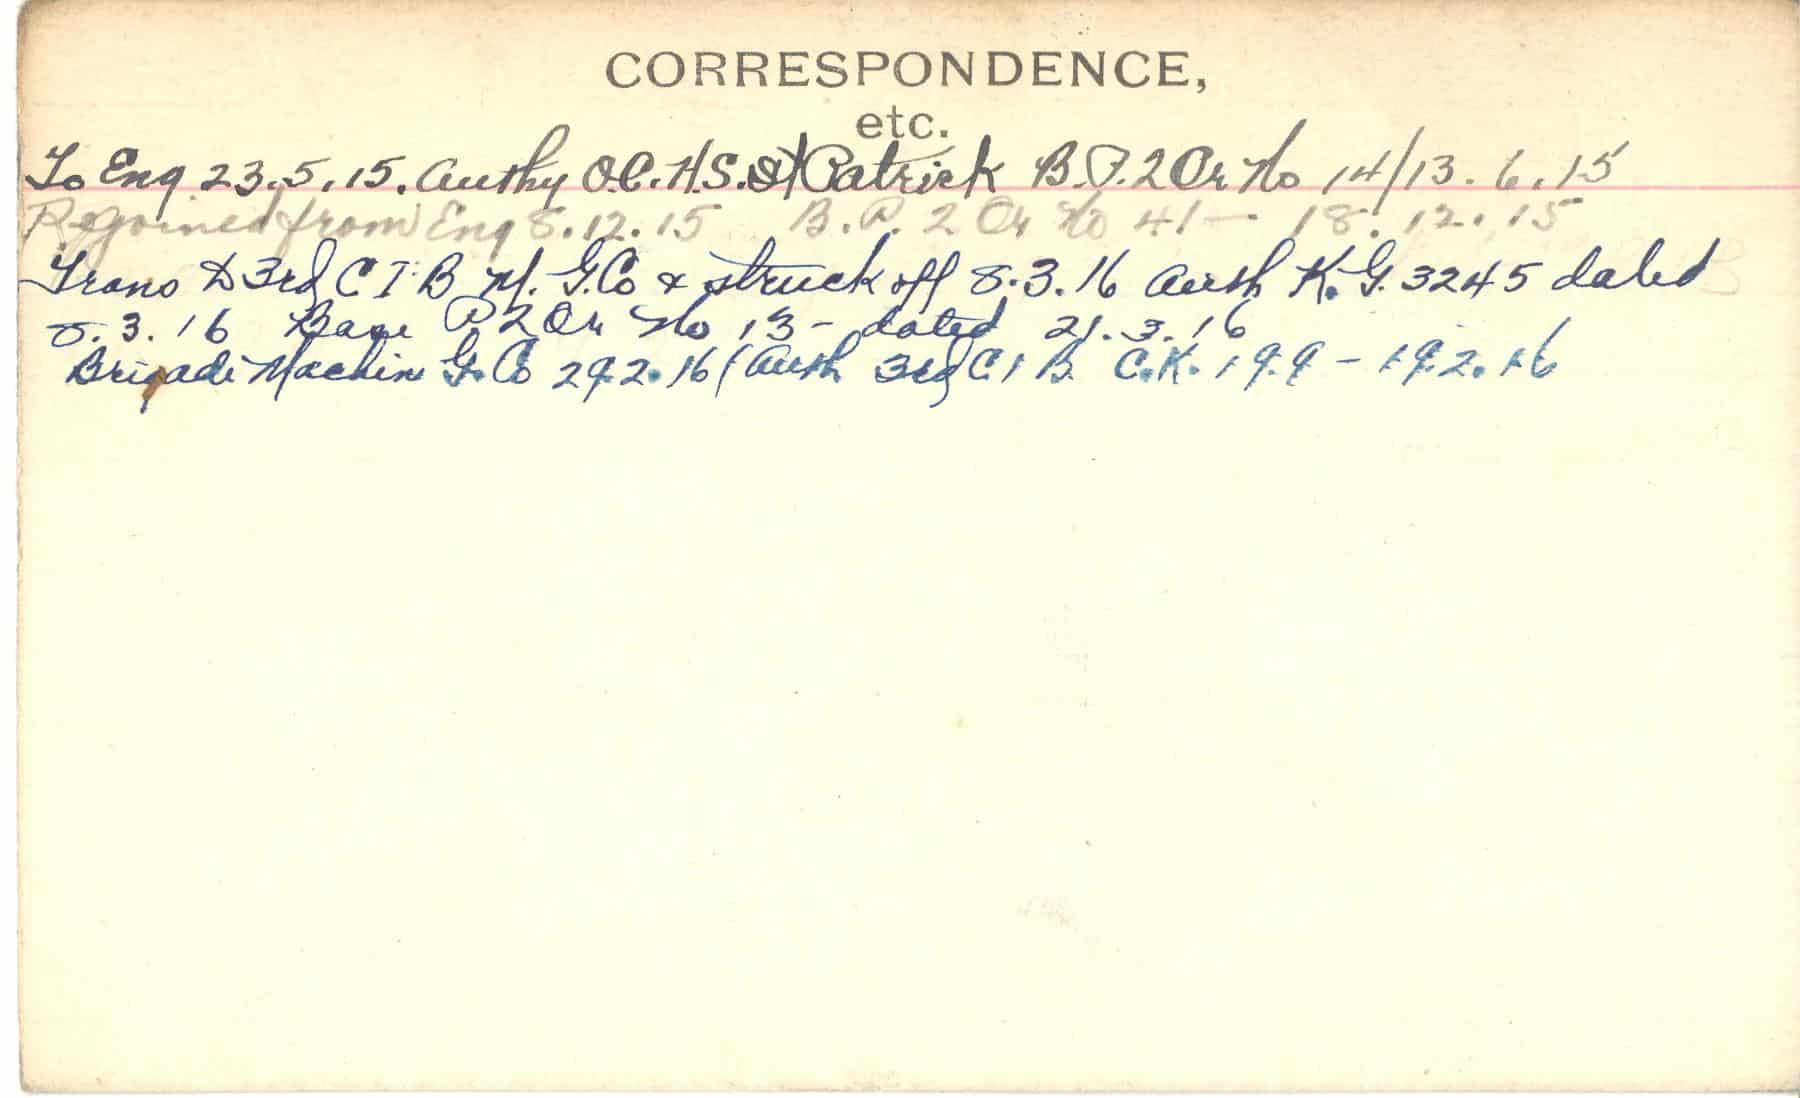 CORRESPONDENCE,
etc.
To Eng 23.5.15. Authy O.C. H.S. St Patrick B.P.2 Or No 14/13.6.15
Rejoined from Eng 8.12.15 B.P. 2 Or No 41 - 18.12.15
Trans to 3rd C I B M. G. Co & struck off 8.3.16 Auth K.G. 3245 dated
8.3.16 Base P 2 Or No 13 - dated 21.3.16
Brigade Machine G. Co 29.2.16 (Auth 3rd C I B. C.K. 199 - 19.2.16